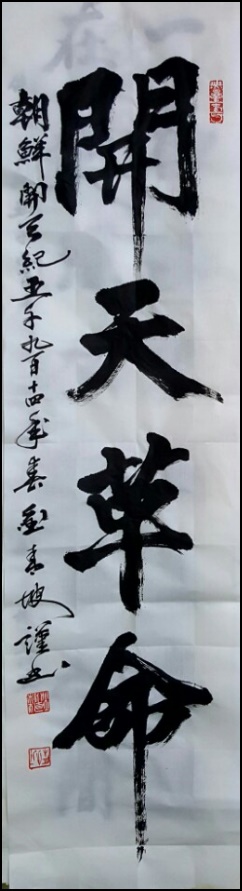 開天革命
朝鮮開天紀五千九百十四年春金青坡謹書